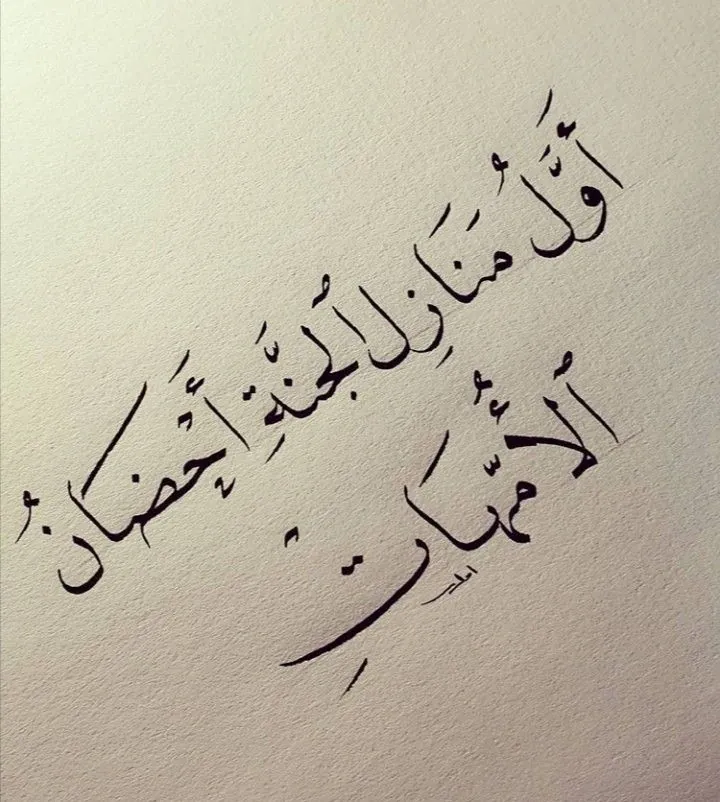 أَوَّلُ مَنَازِلِ الجَنَّةِ أَحْضَانُ
الأُمَّهَاتِ